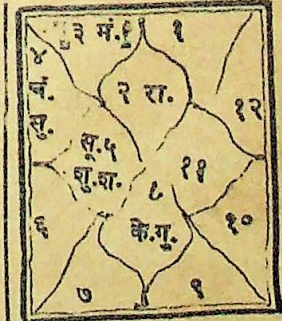 ३ मं. १
४
२ रा.
१२
सु.
सू.५
शु.श.
११
८
६
के.गु.
१०
७ ९